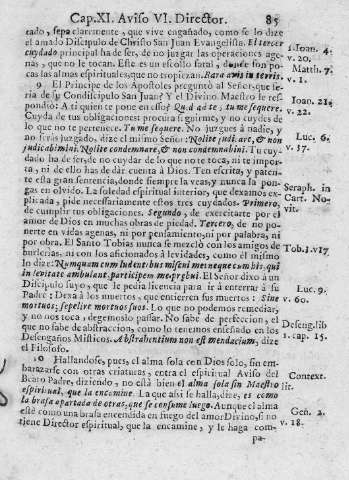 Cap.XI. Aviso VI. Director. 85
tado, sepa claramente, que vive engañado, como se lo dize
el amado Discipulo de Christo San Juan Evangelista. El tercer
cuydado principal ha de ser, de no juzgar las operaciones age-
nas, que no le tocan. Este es un escollo fatal, donde son po-
cas las almas espirituales, que no tropiezan. Rara avis in terris.
1 Ioan. 4.
v. 20.
Matth. 7.
v. 1.
9 El Principe de los Apostoles preguntò al Señor, que se-
ria de su Condiscipulo San Juan? Y el Divino Maestro le res-
pondiò: A ti quien te pone en esso? Quid ad te, tu me sequere.
Cuyda de tus obligaciones: procura siguirme, y no cuydes de
lo que no te pertenece. Tu me sequere. No juzgues à nadie, y
no serás juzgado, dize el mismo Señor: Nolite judicare, & non
judicabimini. Nolite condemnare, & non condemnabimini. Tu cuy-
dado ha de ser, de no cuydar de lo que no te toca, ni te impor-
ta, ni de ello has de dàr cuenta à Dios. Ten escrita, y paten-
te esta gran sentencia, donde siempre la veas, y nunca la pon-
gas en olvido. La soledad espiritual interior, que dexamos ex-
plicada, pide necessariamente estos tres cuydados. Primero,
de cumplir tus obligaciones. Segundo, de exercitarte por el
amor de Dios en muchas obras de piedad. Tercero, de no po-
nerte en vidas agenas, ni por pensamiento, ni por palabras, ni
por obra. El Santo Tobias nunca se mezclò con los amigos de
burlerias, ni con los aficionados à levidades, como èl mismo
lo dize: Nunquam cum ludentibus miscui me: neque cum bis, qui
in levitate ambulant, participem me præbui. El Señor dixo à un
Discipulo suyo, que le pedia licencia para ir à enterrar à su
Padre: Dexa à los muertos, que entierren sus muertos: Sine
mortuos, sepelire mortuos suos. Lo que no podemos remediar,
y no nos toca, dexemoslo passar. No sabe de perfeccion, el
que no sabe de abstraccion, como lo tenemos enseñado en los
Desengaños Misticos. Abstrahentium non est mendacium, dize
el Filosofo.
Ioan. 21.
v. 22.
Luc. 6.
v. 37.
Seraph. in
Cart. No-
vit.
Tob. 3. v17
Luc. 9.
v. 60.
Deseng. lib
1. cap. 15.
10 Hallandose, pues, el alma sola con Dios solo, sin em-
barazarse con otras criaturas, entra el espiritual Aviso del
Beato Padre, diziendo, no està bien el alma sola sin Maestro
espiritual, que la encamine. La que assi se halla, dize, es como
la brasa apartada de otras, que se consume luego. Aunque el alma
estè como una brasa encendida en fuego del amor Divino, si no
tiene Director espiritual, que la encamine, y le haga com-
Context.
lit.
Gen. 2.
v. 18.
pa-